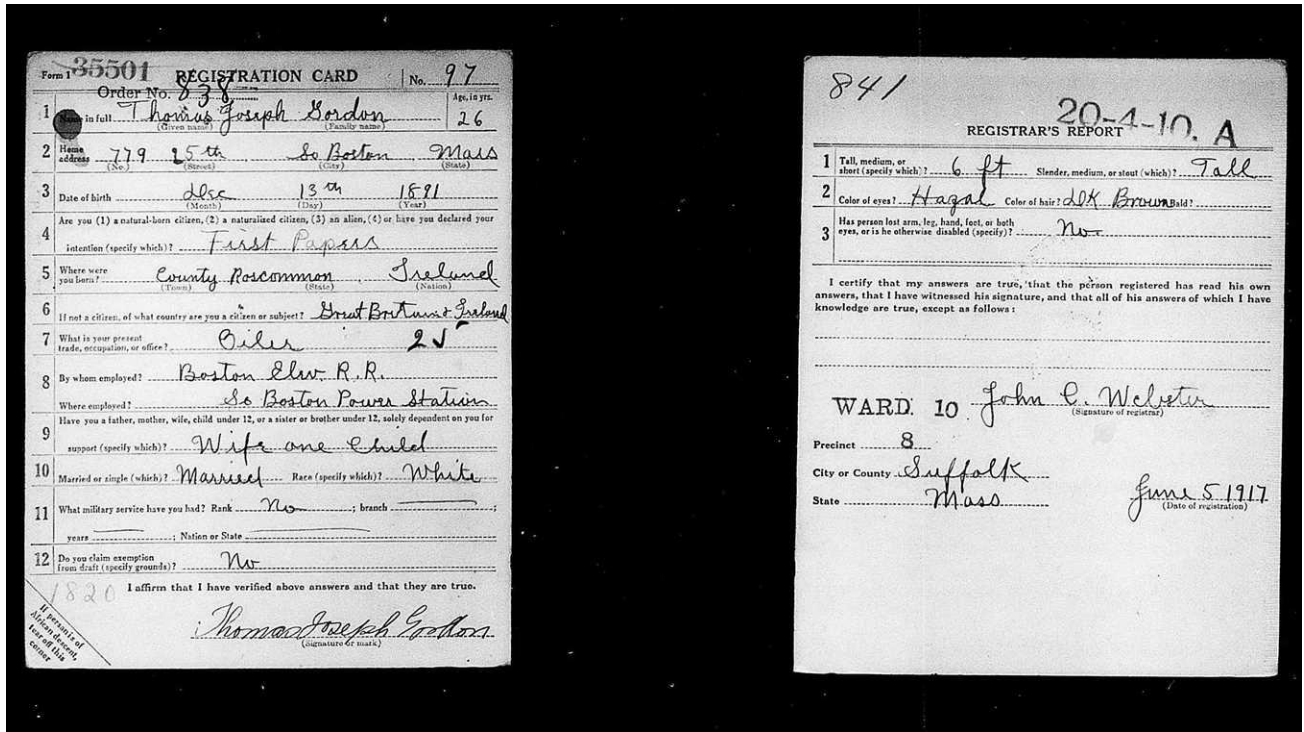 Form 1 35501 REGISTRATION CARD No. 97
Order No. 838
1 Name in full Thomas Joseph Gordon Age, in yrs. 26
(Given name) (Family name)
2 Home address 779 E 5th So Boston Mass
(No.) (Street) (City) (State)
3 Date of birth Dec 13th 1891
(Month) (Day) (Year)
Are you (1) a natural-born citizen, (2) a naturalized citizen, (3) an alien, (4) or have you declared your
4 intention (specify which)? First Papers
5 Where were you born? County Roscommon Ireland
(Town) (State) (Nation)
6 If not a citizen, of what country are you a citizen or subject? Great Britain & Ireland
7 What is your present trade, occupation, or office? Oiler 25
8 By whom employed? Boston Elev. R.R.
Where employed? So Boston Power Station
Have you a father, mother, wife, child under 12, or a sister or brother under 12, solely dependent on you for
9 support (specify which)? Wife one Child
10 Married or single (which)? Married Race (specify which)? White
11 What military service have you had? Rank No ; branch ;
years ; Nation or State
12 Do you claim exemption from draft (specify grounds)? No
1820 I affirm that I have verified above answers and that they are true.
Thomas Joseph Gordon
(Signature or mark)
If person is of African descent, tear off this corner
841
20-4-10. A
REGISTRAR'S REPORT
1 Tall, medium, or short (specify which)? 6 ft Slender, medium, or stout (which)? Tall
2 Color of eyes? Hazal Color of hair? Dk Brown Bald?
3 Has person lost arm, leg, hand, foot, or both eyes, or is he otherwise disabled (specify)? No
I certify that my answers are true, that the person registered has read his own
answers, that I have witnessed his signature, and that all of his answers of which I have
knowledge are true, except as follows:
WARD. 10 John C. Webster
(Signature of registrar)
Precinct 8
City or County Suffolk
State Mass June 5 1917
(Date of registration)